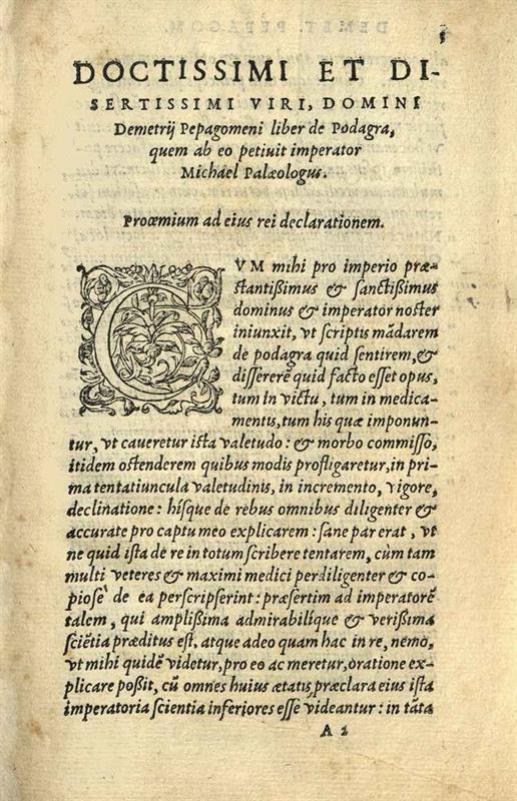 DOCTISSIMI ET DI-
SERTISSIMI VIRI, DOMINI
Demetrij Pepagomeni liber de Podagra,
quem ab eo petiuit imperator
Michael Palæologus.
Proœmium ad eius rei declarationem.
CVM mihi pro imperio præ-
stantißimus & sanctißimus
dominus & imperator noster
iniunxit, vt scriptis mādarem
de podagra quid sentirem, &
dissererē quid facto esset opus,
tum in victu, tum in medica-
mentis, tum his quæ imponun-
tur, vt caueretur ista valetudo: & morbo commisso,
itidem ostenderem quibus modis profligaretur, in pri-
ma tentatiuncula valetudinis, in incremento, vigore,
declinatione: hísque de rebus omnibus diligenter &
accurate pro captu meo explicarem: sane par erat, vt
ne quid ista de re in totum scribere tentarem, cùm tam
multi veteres & maximi medici perdiligenter & co-
piosè de ea perscripserint: præsertim ad imperatorē
talem, qui amplißima admirabilíque & verißima
sciētia præditus est, atque adeo quam hac in re, nemo,
vt mihi quidē videtur, pro eo ac meretur, oratione ex-
plicare poßit, cū omnes huius ætatis præclara eius ista
imperatoria scientia inferiores esse videantur: in tāta
A 2